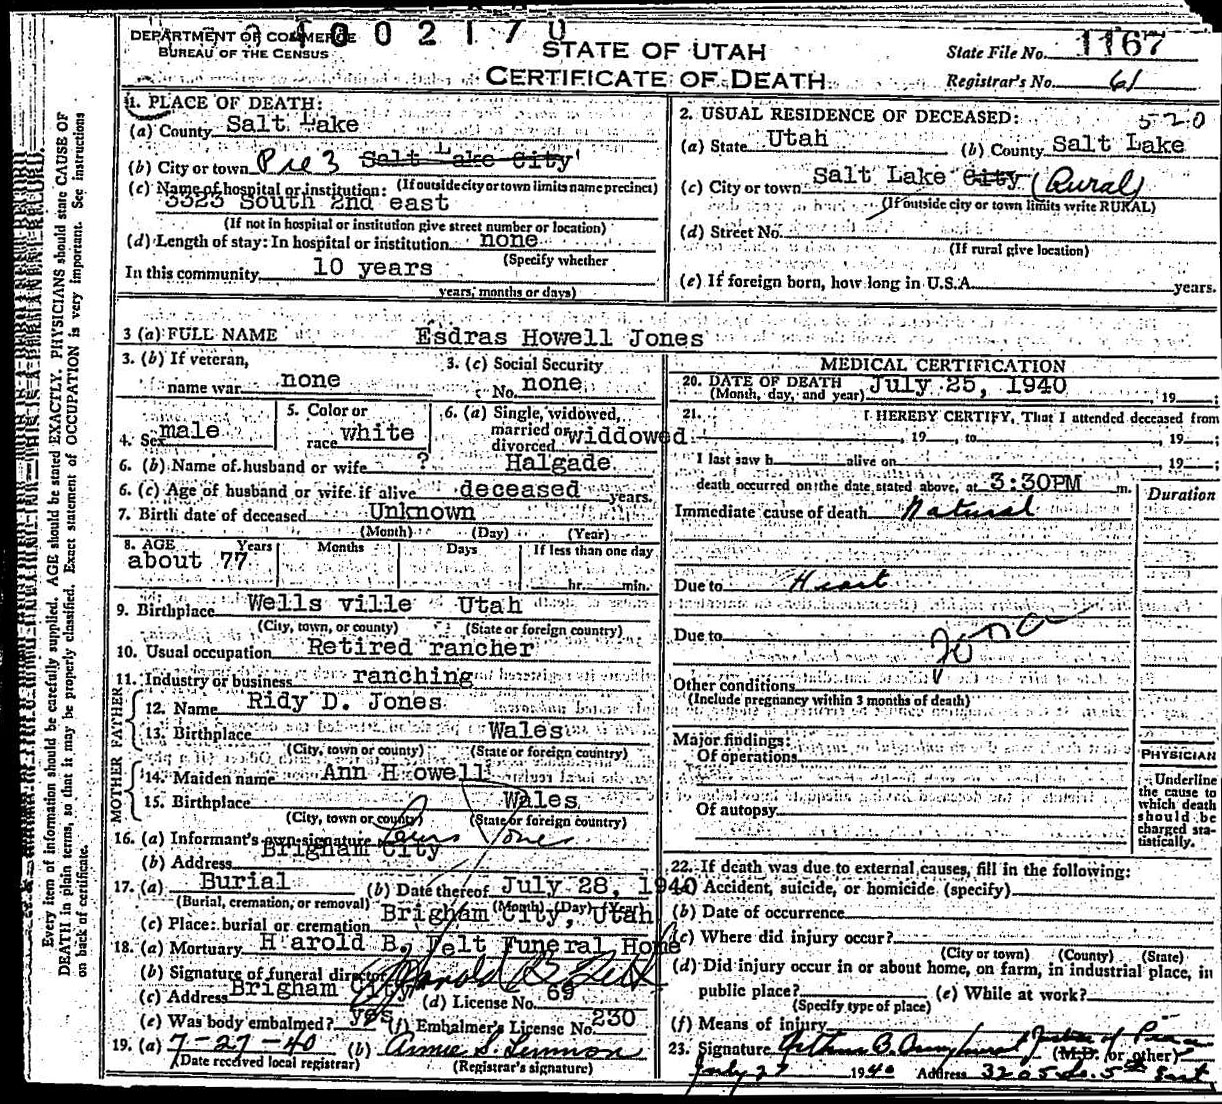 1002170
DEPARTMENT OF COMMERCE
BUREAU OF THE CENSUS
STATE OF UTAH
CERTIFICATE OF DEATH
State File No. 1167
Registrar's No. 61
1. PLACE OF DEATH:
(a) County Salt Lake
(b) City or town Pre 3 Salt Lake City
(c) Name of hospital or institution: (If outside city or town limits name precinct)
3323 South 2nd east
(If not in hospital or institution give street number or location)
(d) Length of stay: In hospital or institution none
(Specify whether
In this community 10 years
years, months or days)
2. USUAL RESIDENCE OF DECEASED: 520
(a) State Utah (b) County Salt Lake
(c) City or town Salt Lake City (Rural)
(If outside city or town limits write RURAL)
(d) Street No.
(If rural give location)
(e) If foreign born, how long in U.S.A. years.
3 (a) FULL NAME Esdras Howell Jones
3. (b) If veteran,
name war none
3. (c) Social Security
No. none
4. Sex male
5. Color or
race white
6. (a) Single, widowed,
married or
divorced widdowed
6. (b) Name of husband or wife ? Halgade
6. (c) Age of husband or wife if alive deceased years.
7. Birth date of deceased Unknown
(Month) (Day) (Year)
8. AGE Years Months Days If less than one day
about 77
hr. min.
9. Birthplace Wells ville Utah
(City, town, or county) (State or foreign country)
10. Usual occupation Retired rancher
11. Industry or business ranching
FATHER
12. Name Ridy D. Jones
13. Birthplace Wales
(City, town or county) (State or foreign country)
MOTHER
14. Maiden name Ann H owell
15. Birthplace Wales
(City, town or county) (State or foreign country)
16. (a) Informant's own signature Lewis Jones
(b) Address Brigham City
17. (a) Burial (b) Date thereof July 28, 1940
(Burial, cremation, or removal) (Month) (Day) (Year)
(c) Place: burial or cremation Brigham City, Utah
18. (a) Mortuary Harold B. Felt Funeral Home
(b) Signature of funeral director Harold B. Felt
(c) Address Brigham City (d) License No. 69
(e) Was body embalmed? yes (f) Embalmer's License No. 230
19. (a) 7-27-40 (b) Annie S. Lemmon
(Date received local registrar) (Registrar's signature)
MEDICAL CERTIFICATION
20. DATE OF DEATH July 25, 1940
(Month, day, and year) , 19 ;
21. I HEREBY CERTIFY, That I attended deceased from
, 19 , to , 19 ;
I last saw h alive on , 19 ;
death occurred on the date stated above, at 3:30PM m.
Duration
Immediate cause of death Natural
Due to Heart
Due to
Other conditions
(Include pregnancy within 3 months of death)
Major findings:
Of operations
Of autopsy
PHYSICIAN
Underline
the cause to
which death
should be
charged sta-
tistically.
22. If death was due to external causes, fill in the following:
(a) Accident, suicide, or homicide (specify)
(b) Date of occurrence
(c) Where did injury occur?
(City or town) (County) (State)
(d) Did injury occur in or about home, on farm, in industrial place, in
public place? (e) While at work?
(Specify type of place)
(f) Means of injury
23. Signature Arthur B. Justice of Peace
(M.D. or other)
July 27 1940 Address 3205 So. 5th East
Every item of information should be carefully supplied. AGE should be stated EXACTLY. PHYSICIANS should state CAUSE OF
DEATH in plain terms, so that it may be properly classified. Exact statement of OCCUPATION is very important. See instructions
on back of certificate.